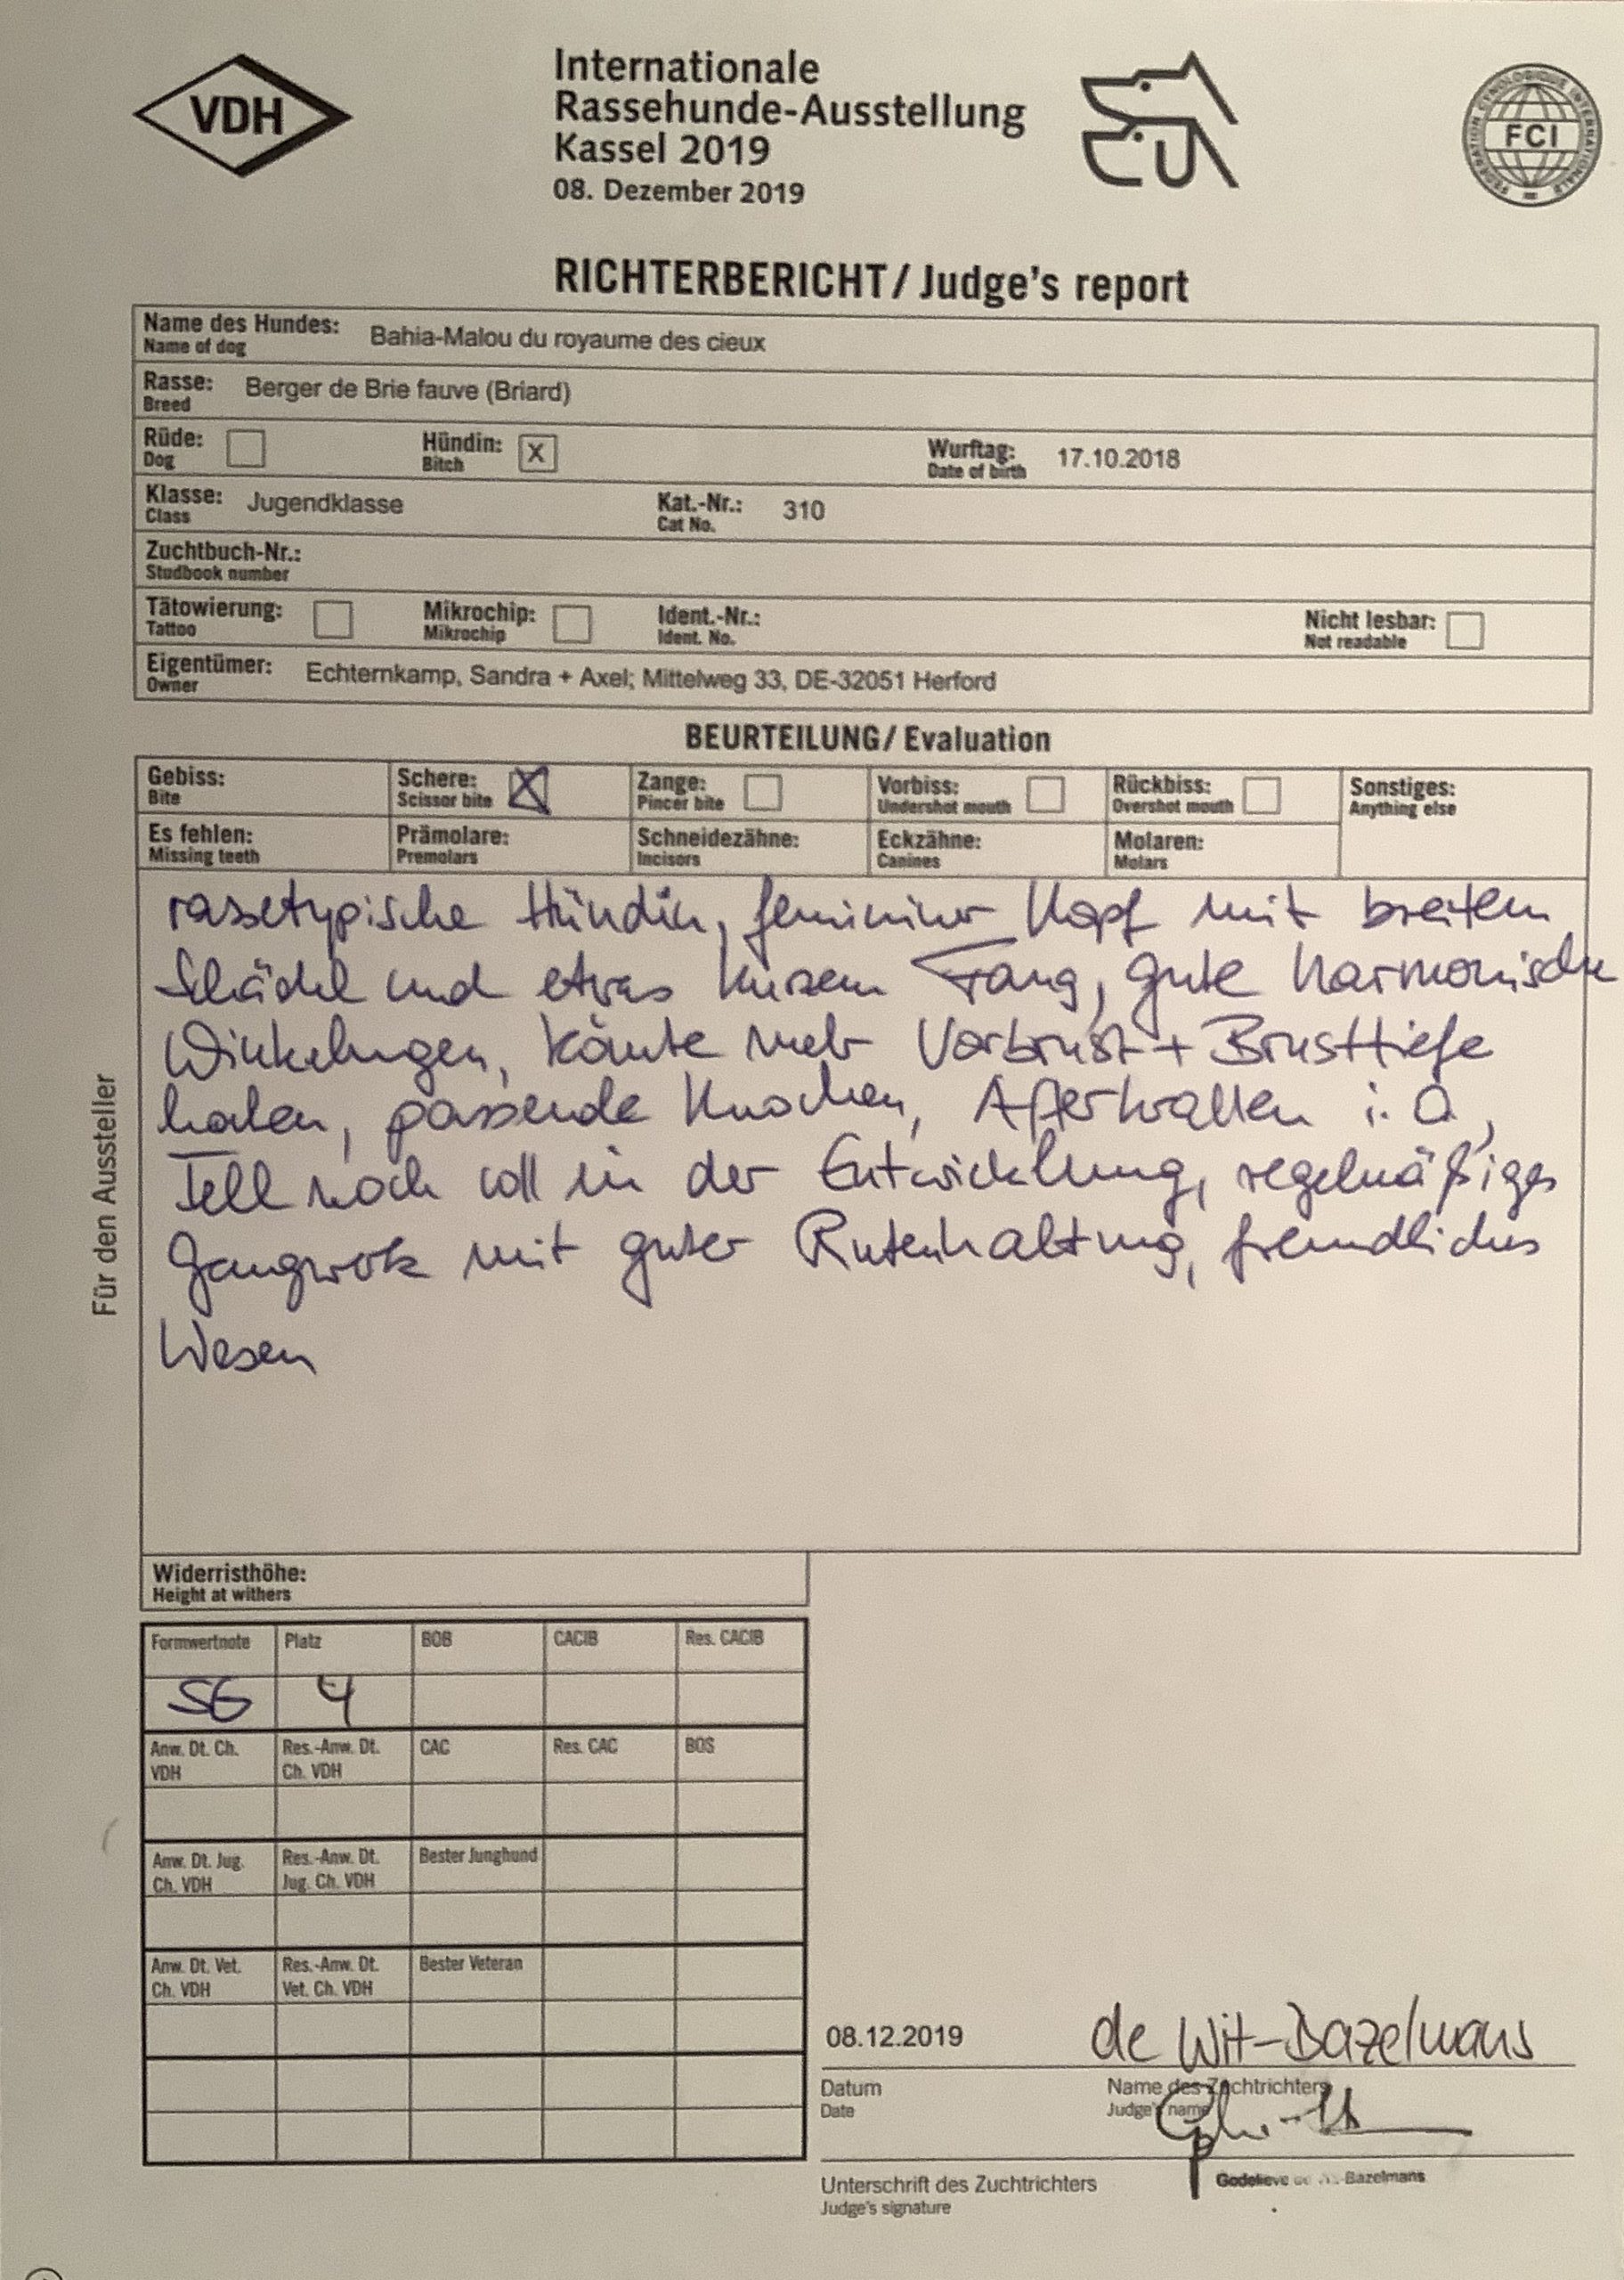 VDH
Internationale
Rassehunde-Ausstellung
Kassel 2019
08. Dezember 2019
FEDERATION CYNOLOGIQUE INTERNATIONALE
FCI
RICHTERBERICHT / Judge's report
Name des Hundes: Bahia-Malou du royaume des cieux
Name of dog
Rasse: Berger de Brie fauve (Briard)
Breed
Rüde: Hündin: X Wurftag: 17.10.2018
Dog Bitch Date of birth
Klasse: Jugendklasse Kat.-Nr.: 310
Class Cat No.
Zuchtbuch-Nr.:
Studbook number
Tätowierung: Mikrochip: Ident.-Nr.: Nicht lesbar:
Tattoo Mikrochip Ident. No. Not readable
Eigentümer: Echternkamp, Sandra + Axel; Mittelweg 33, DE-32051 Herford
Owner
BEURTEILUNG / Evaluation
Gebiss: Schere: X Zange: Vorbiss: Rückbiss: Sonstiges:
Bite Scissor bite Pincer bite Undershot mouth Overshot mouth Anything else
Es fehlen: Prämolare: Schneidezähne: Eckzähne: Molaren:
Missing teeth Premolars Incisors Canines Molars
rassetypische Hündin, femininer Kopf mit breitem
Schädel und etwas kurzem Fang, gute harmonische
Winkelungen, könnte mehr Vorbrust + Brusttiefe
haben, passende Knochen, Afterkrallen i. O,
Fell noch voll in der Entwicklung, regelmäßiges
Gangwerk mit guter Rutenhaltung, freundliches
Wesen
Für den Aussteller
Widerristhöhe:
Height at withers
Formwertnote Platz BOB CACIB Res. CACIB
SG 4
Anw. Dt. Ch. Res.-Anw. Dt. CAC Res. CAC BOS
VDH Ch. VDH
Anw. Dt. Jug. Res.-Anw. Dt. Bester Junghund
Ch. VDH Jug. Ch. VDH
Anw. Dt. Vet. Res.-Anw. Dt. Bester Veteran
Ch. VDH Vet. Ch. VDH
08.12.2019 de Wit-Bazelmans
Datum Name des Zuchtrichters
Date Judge's name
Unterschrift des Zuchtrichters Godelieve Bazelmans
Judge's signature